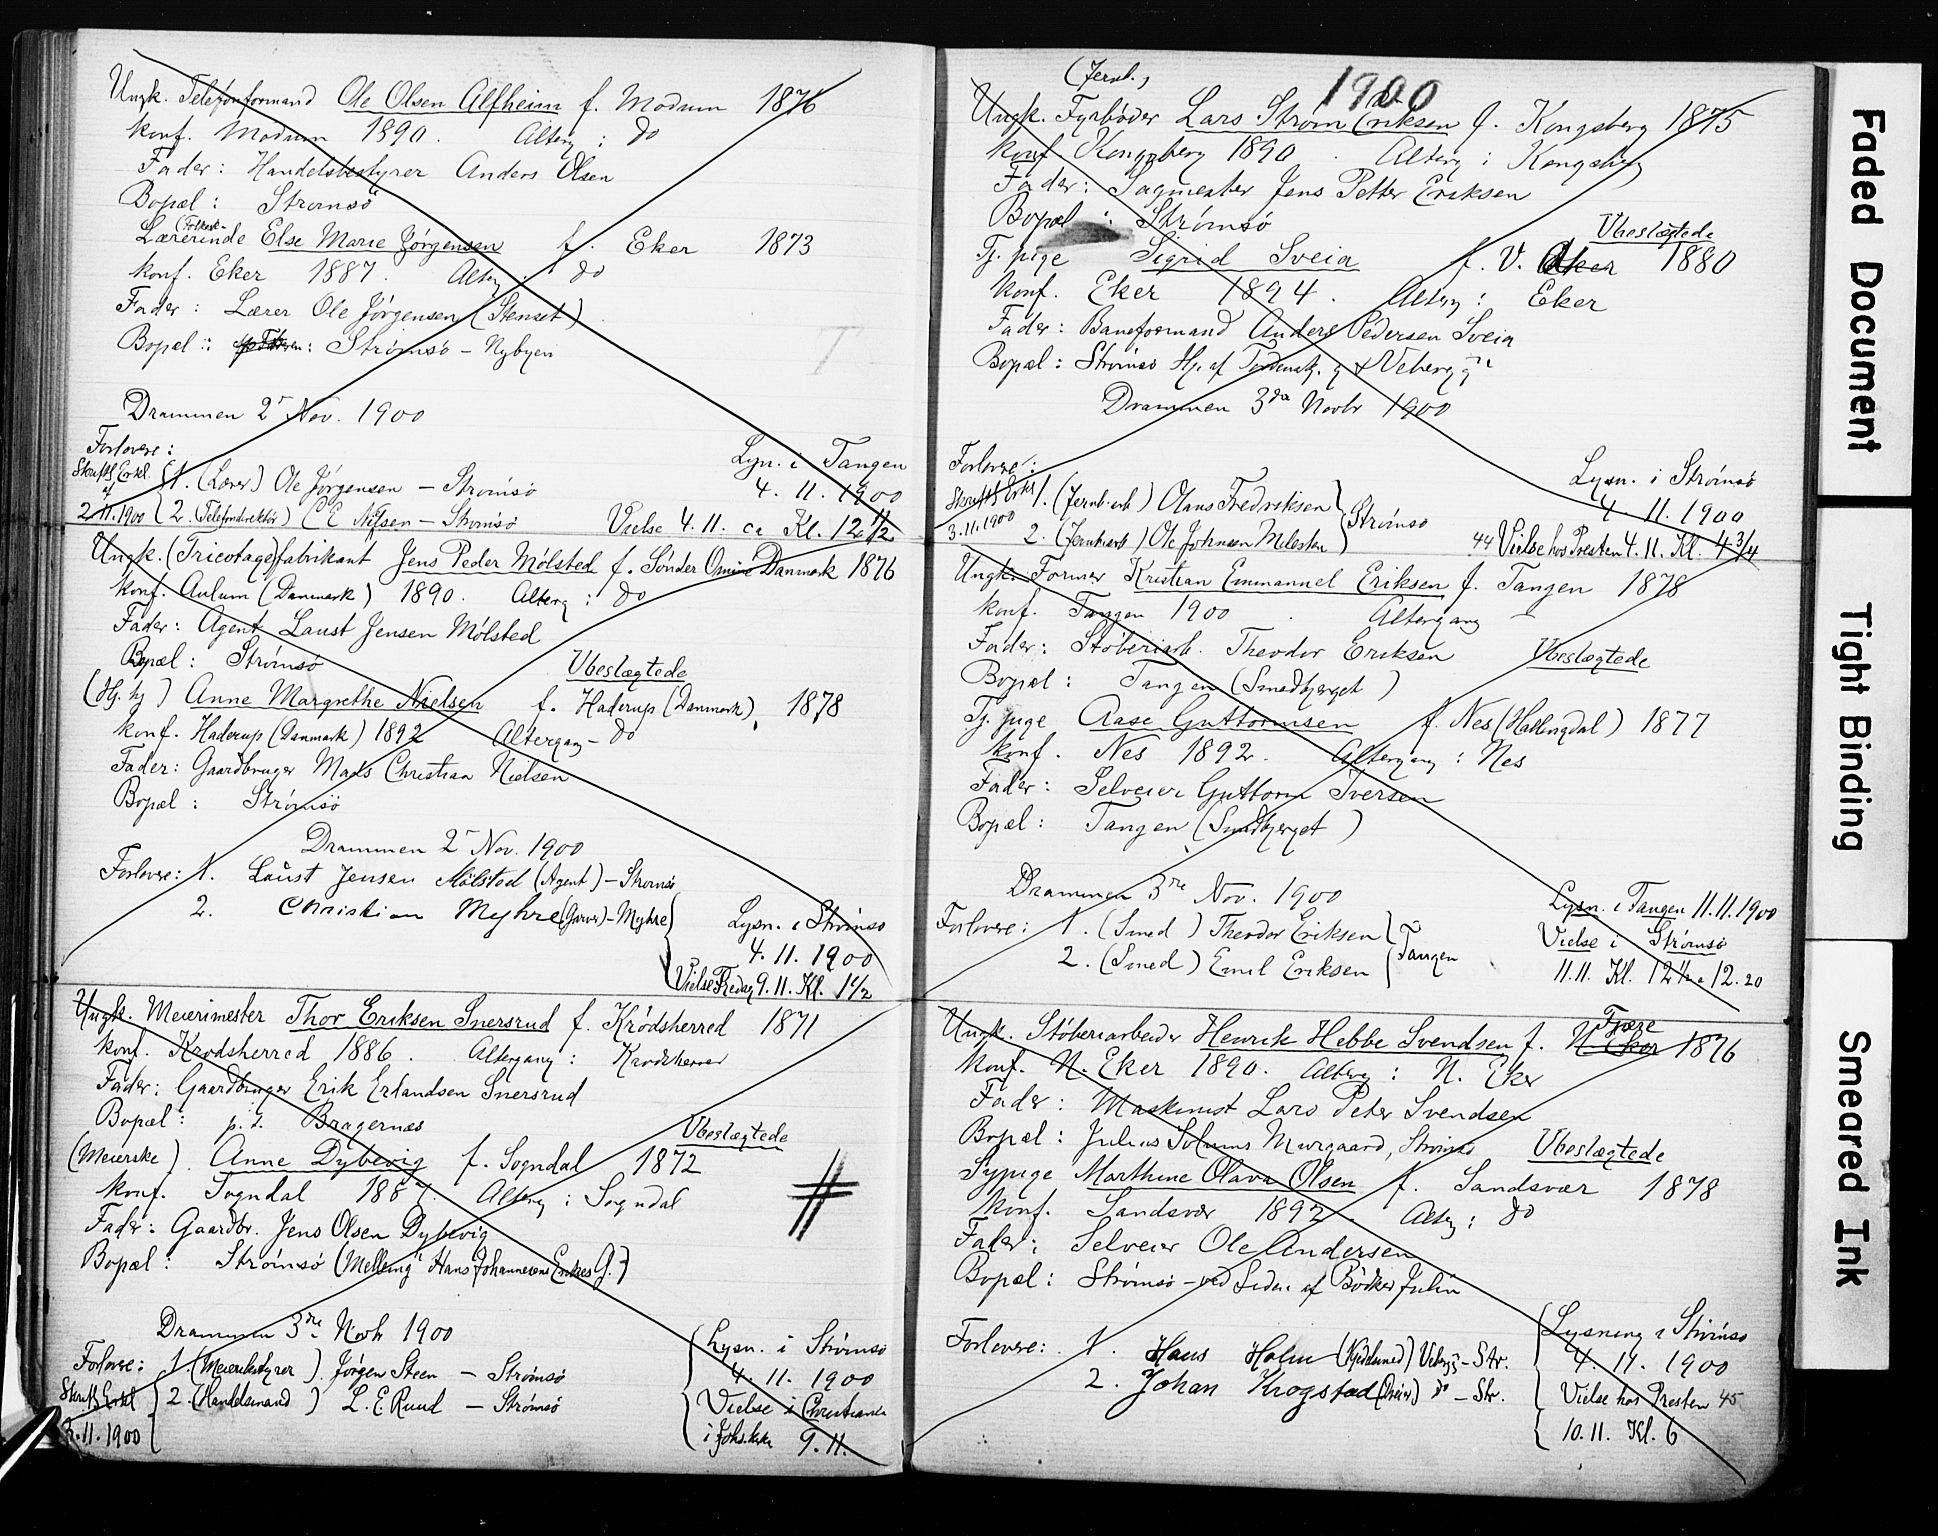 Ungk. Telefonformand Ole Olsen Alfheim f. Modum 1876
Konf. Modum 1890. Alterg: do
Fader: Handelsbestyrer Anders Olsen
Bopæl: Strømsö
Lærerinde Else Marie Jørgensen f. Eker 1873
Konf. Eker 1887. Alterg. do
Fader: Lærer Ole Jørgensen (Stenset)
Bopæl: Strømsö - Nybyen
Drammen 2 Nov. 1900
Forlovere:
Skriftl. Erkl. af 2.11.1900
1. (Lærer) Ole Jørgensen - Strømsö
2. (Telefondirektör) C E Nilsen - Strømsö
Lysn. i Tangen
4. 11. 1900
Vielse 4.11. ca Kl. 12 1/2
Ungk. (Tricotage)fabrikant Jens Peder Mølsted f. Sønder Danmark 1876
Konf. Aulum (Danmark) 1890. Alterg: do
Fader: Agent Laust Jensen Mølsted
Bopæl: Strømsö
Ubeslægtede
(Hj. hj) Anne Margrethe Nielsen f. Haderup (Danmark), 1878
Konf. Haderup (Danmark) 1892 Altergang - do
Fader: Gaardbruger Mads Christian Nielsen
Bopæl: Strømsö
Drammen 2 Nov. 1900
Forlovere: 1. Laust Jensen Mölsted (Agent) - Strømsö
2. Christian Myhre (Garver) - Myhre
Lysn. i Strømsö
4. 11. 1900
Vielse Fredag 9.11. Kl. 1 1/2
Ungk. Meierimester Thor Eriksen Snersrud f. Krödsherred 1871
Konf. Krödsherred 1886. Altergang: Krödsherred
Fader: Gaardbruger Erik Erlandsen Snersrud
Bopæl: p.t. Bragernæs
Ubeslægtede
(Meierske). Anne Dybevig f. Sogndal 1872
Konf. Sogndal 188 Alterg: Sogndal
Fader: Gaardbr. Jens Olsen Dybevig
Bopæl: Strømsö (Melleng Hans Johannesens Enkes G.)
#
Drammen 3 Novbr 1900
Forlovere: 1 (Meieribestyrer) Jørgen Steen - Strømsö
Skriftl. Erkl 3.11.1900
2. (Handelsmand) L. E. Ruud - Strømsö
Lysn. i Strømsö
4. 11. 1900
Vielse i Christiania
i Johs.kirke 9.11.
(Jernb.)
1900
Ungk. Fyrbøder Lars Strøm Eriksen f. Kongsberg 1875
Konf Kongsberg 1890. Alterg: Kongsberg
Fader: Sagmester Jens Petter Eriksen
Bopæl: Strømsö
Ubeslægtede
Tj. pige Sigrid Sveia f. V. Aker 1880
Konf. Eker 1894. Alterg: Eker
Fader: Baneformand Anders Pedersen Sveia
Bopæl: Strømsö Hj. af Tordenskj. g & Vebergg
Drammen 3die Novbr 1900
Forlovere:
Skriftl. Erkl 3.11.1900
1. (Jernb.arb) Olaus Fredriksen
2. (Jernbarb) Ole Johnsen
Strømsö
Lysn. i Strømsö
4. 11. 1900
44 Vielse hos Presten 4.11. Kl. 4 3/4
Ungk. Former Kristian Emmanuel Eriksen f. Tangen 1878
Konf. Tangen 1900. Altergang -
Fader: Støberiarb. Theodor Eriksen
Ubeslægtede
Bopæl: Tangen (Smedbjerget)
Tj. pige Aase Guttormsen f. Nes (Hallingdal) 1877
Konf. Nes 1892. Altergang: Nes
Fader: Selveier Guttorm Iversen
Bopæl: Tangen (Smedbjerget)
Drammen 3die Nov. 1900
Forlovere: 1. (Smed) Theodor Eriksen
2. (Smed) Emil Eriksen
Tangen
Lysn. i Tangen 11.11.1900
Vielse i Strømsö
11.11. Kl. 12 1/4 a 12.20
Ungk. Støberiarbeider Henrik Hebbe Svendsen f. N. Eker Fjære 1876
Konf. N. Eker 1890. Alterg: N. Eker
Fader: Maskinist Lars Peter Svendsen
Bopæl: Julius Solums Murgaard, Strømsö
Ubeslægtede
Sypige Marthine Olava Olsen f. Sandsvær 1878
Konf. Sandsvær 1892. Alterg: do
Fader: Selveier Ole Andersen
Bopæl: Strømsö - ved Siden af Bödker Julin
Forlovere: 1. Hans Holm - Str.
2. Johan Krogstad do - Str.
Lysning i Strømsö
4. 11. 1900
Vielse hos Presten 45
10.11. Kl. 6
Faded Document
Tight Binding
Smeared Ink